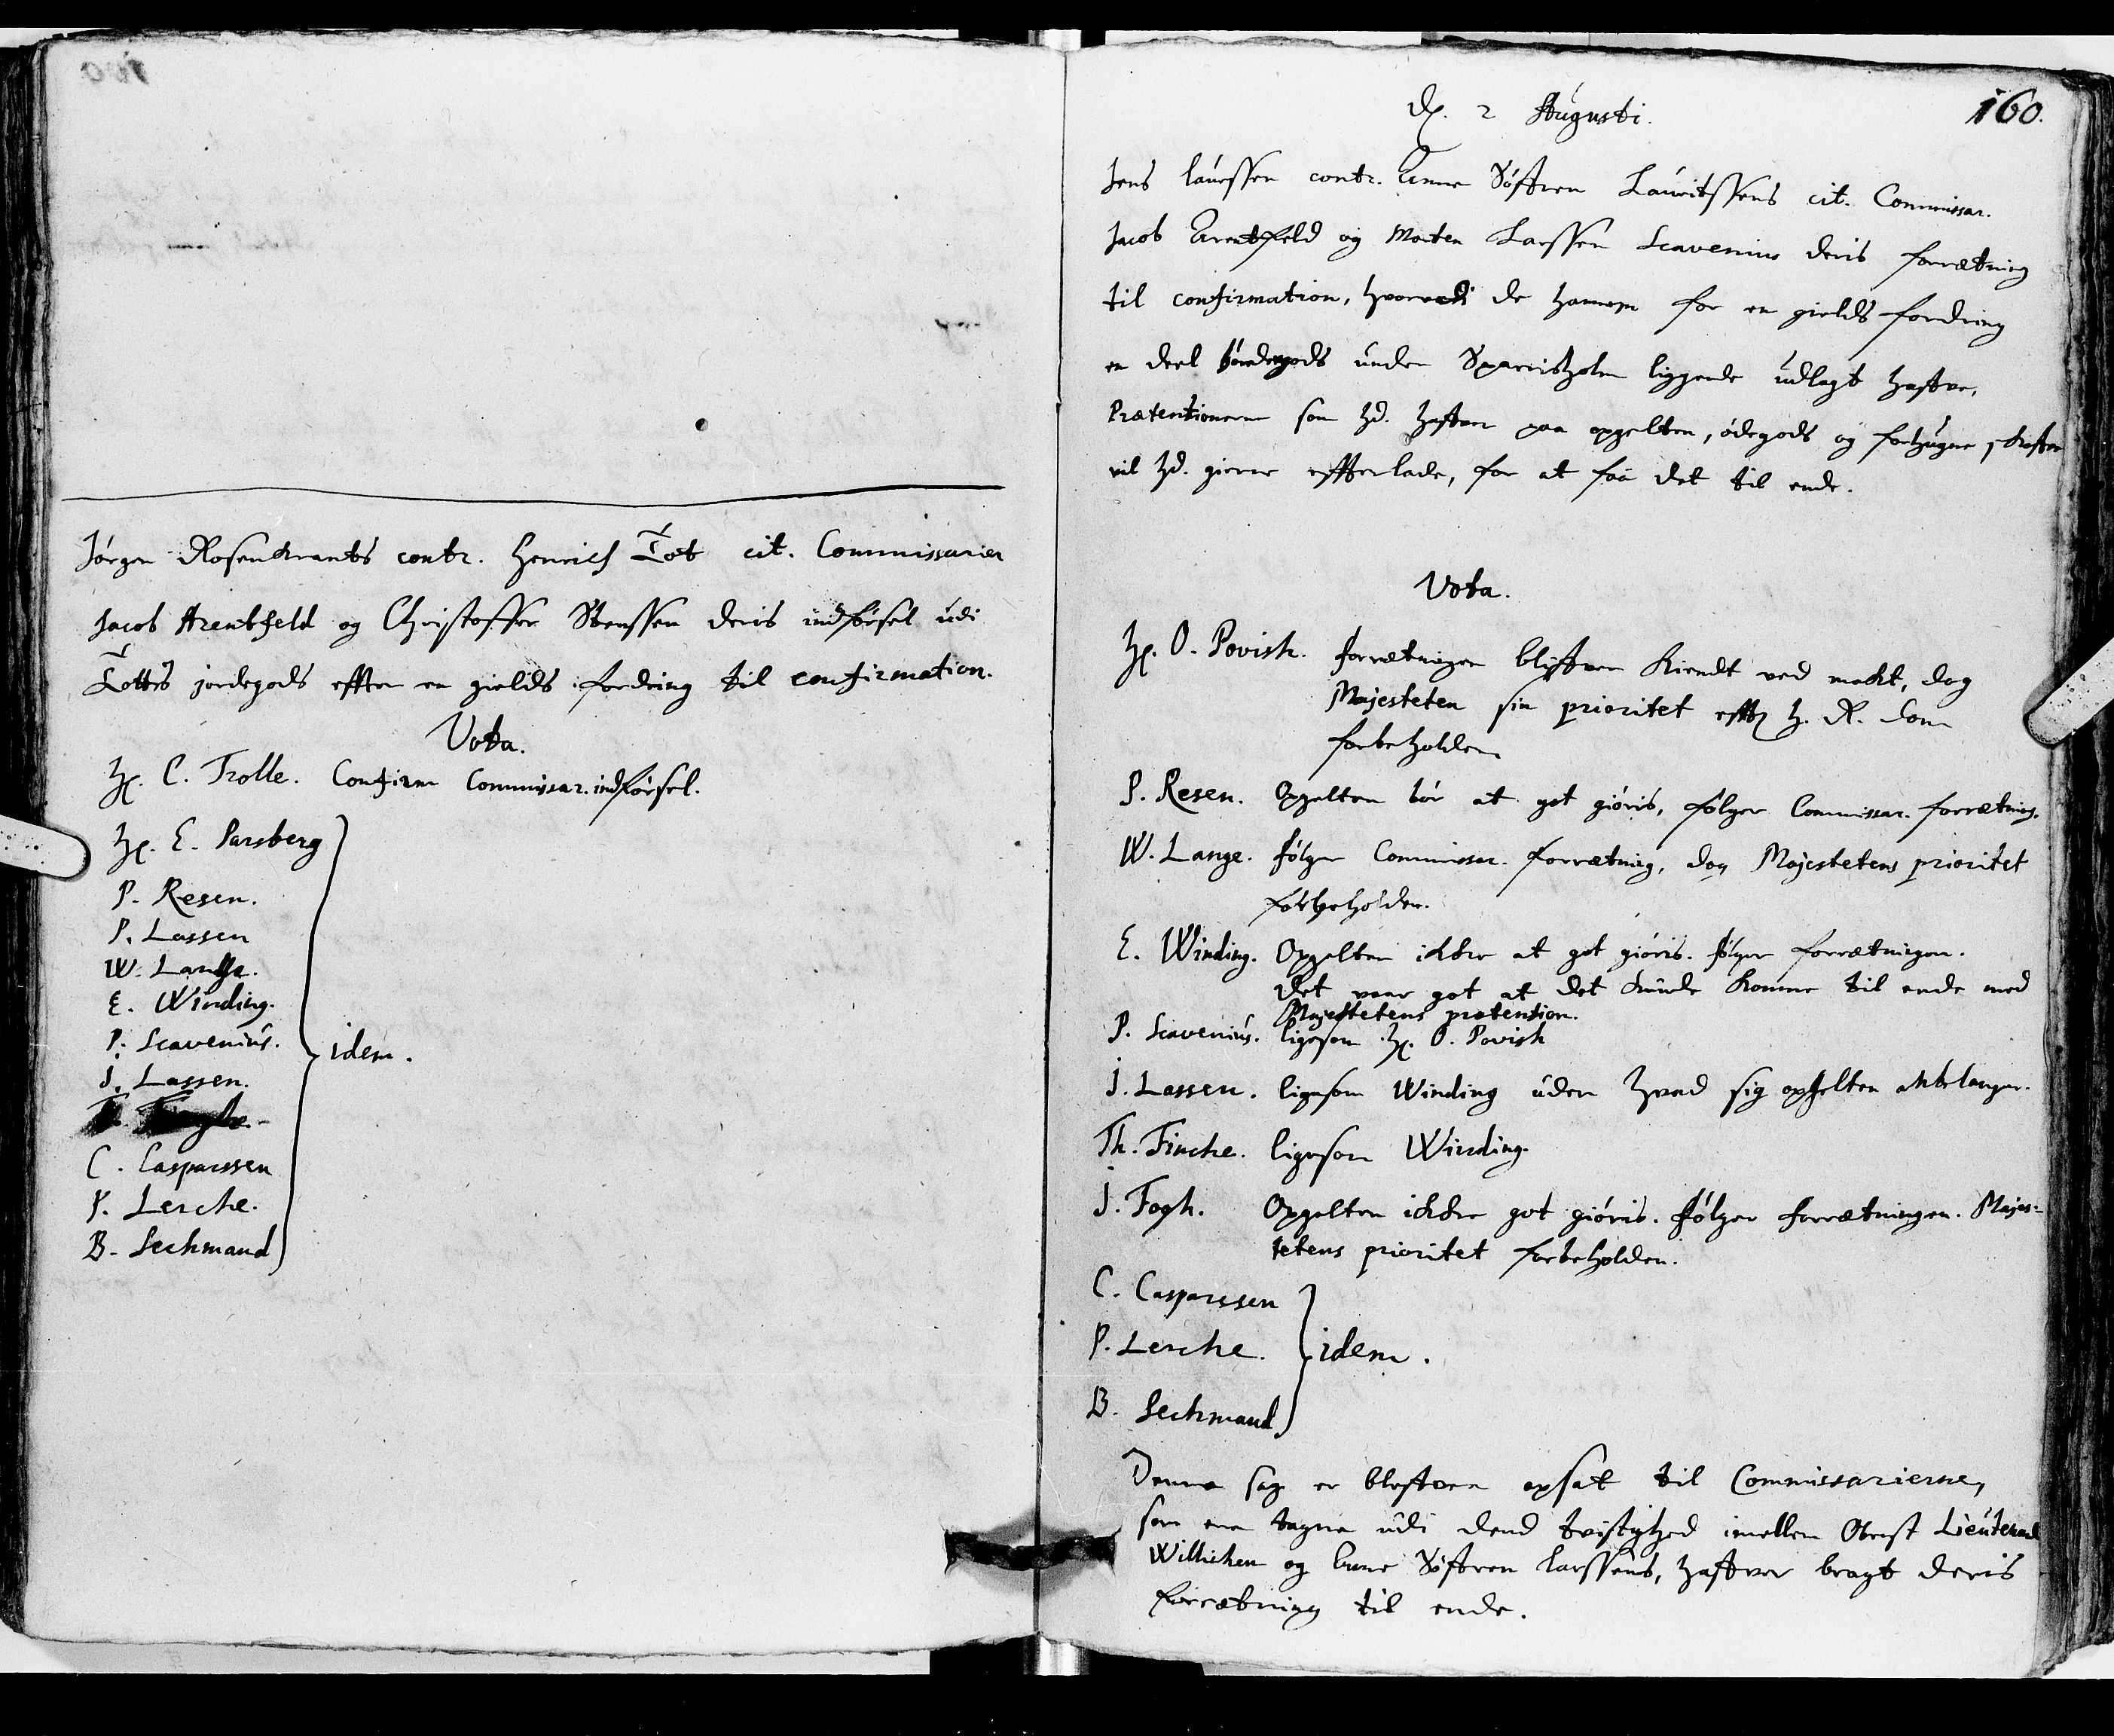 Jørgen Rosenkrants contr. Henrich Tot cit. Commissarier
Jacob Arentfeld og Christoffer Stenssen deris indførsel udi
Totts jordegods effter en gields fordring til confirmation.
Vota.
Hr. C. Trolle. Confirm Commissar. indførsel.
Hr. E. Parsberg
P. Resen.
P. Lassen
W. Lange.
E. Winding.
P. Scavenius.
J. Lassen. idem.
C. Casparssen
P. Lerche.
B. Lechmand
160.
D. 2 Augusti.
Jens laurssen contr. Anne Søffren Lauritssens cit. Commissar.
Jacob Arentfeld og Morten Larssen Scavenius deris forretning
til confirmation, hvorudi de hannem for en gields fordring
en deel bøndergods under Sparrisholm liggende udlagt haffve,
Prætentionerne som hd. haffver paa opgelten, ødegods og forhugne skoffve
vil hd. gierne effterlade, for at faa det til ende.
Vota.
Hr. O. Povish. forretningen bliffver kiendt ved mackt, dog
Majesteten sin prioritet effter H. R. dom
forbeholden
P. Resen. Opgelten bør at got giøris, følger Commissar. forretning.
W. Lange. følger Commissar. forretning, dog Majestetens prioritet
forbeholden.
E. Winding. Opgelten ickke at got giøris. følger forretningen.
det vaar got at det kunde komme til ende med
Majestetens pretention.
P. Scavenius. ligesom Hr. O. Povish
J. Lassen. ligesom Winding uden hvad sig opgelten ahnlanger.
Th. Fincke. ligesom Winding.
J. Fogh. Opgelten ickke got giøris. følger forretningen. Majes-
tetens prioritet forbeholden.
C. Casparssen
P. Lerche. idem.
B. Lechmand
Denne sag er bleffven opsat til Commissarierne,
som ere tagne udi dend tvistighed imellem Obrist Lieutenant
Willichen og Anne Søffren Larssens, haffver bragt deris
forretning til ende.